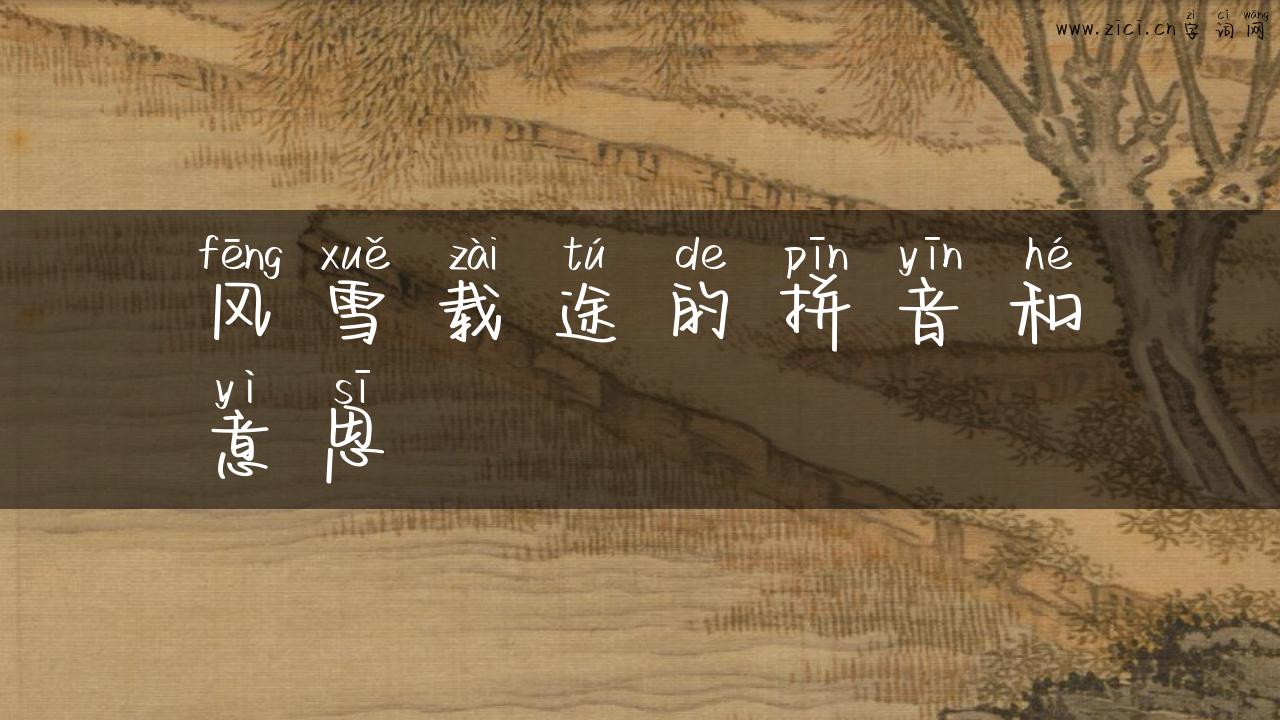 zì cí wǎng
www.zici.cn字词网
fēng xuě zài tú de pīn yīn hé
风雪载途的拼音和
yì sī
意思